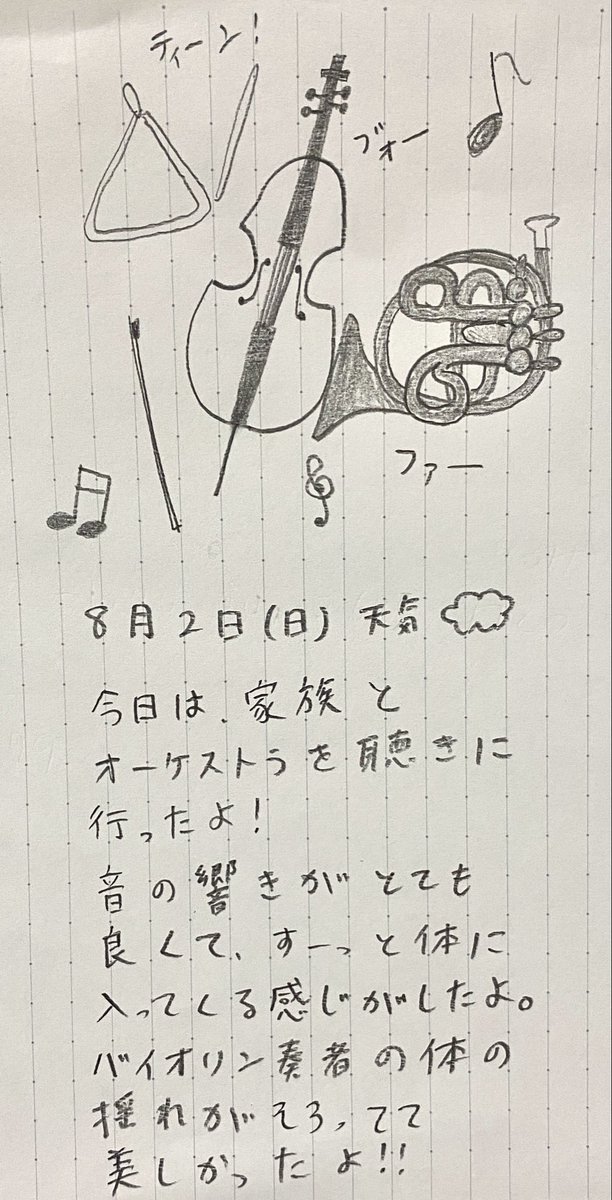 ティーン!
ブォー
ファー
8月2日(日) 天気
今日は、家族と
オーケストラを聴きに
行ったよ!
音の響きがとても
良くて、すーっと体に
入ってくる感じがしたよ。
バイオリン奏者の体の
揺れがそろってて
美しかったよ!!